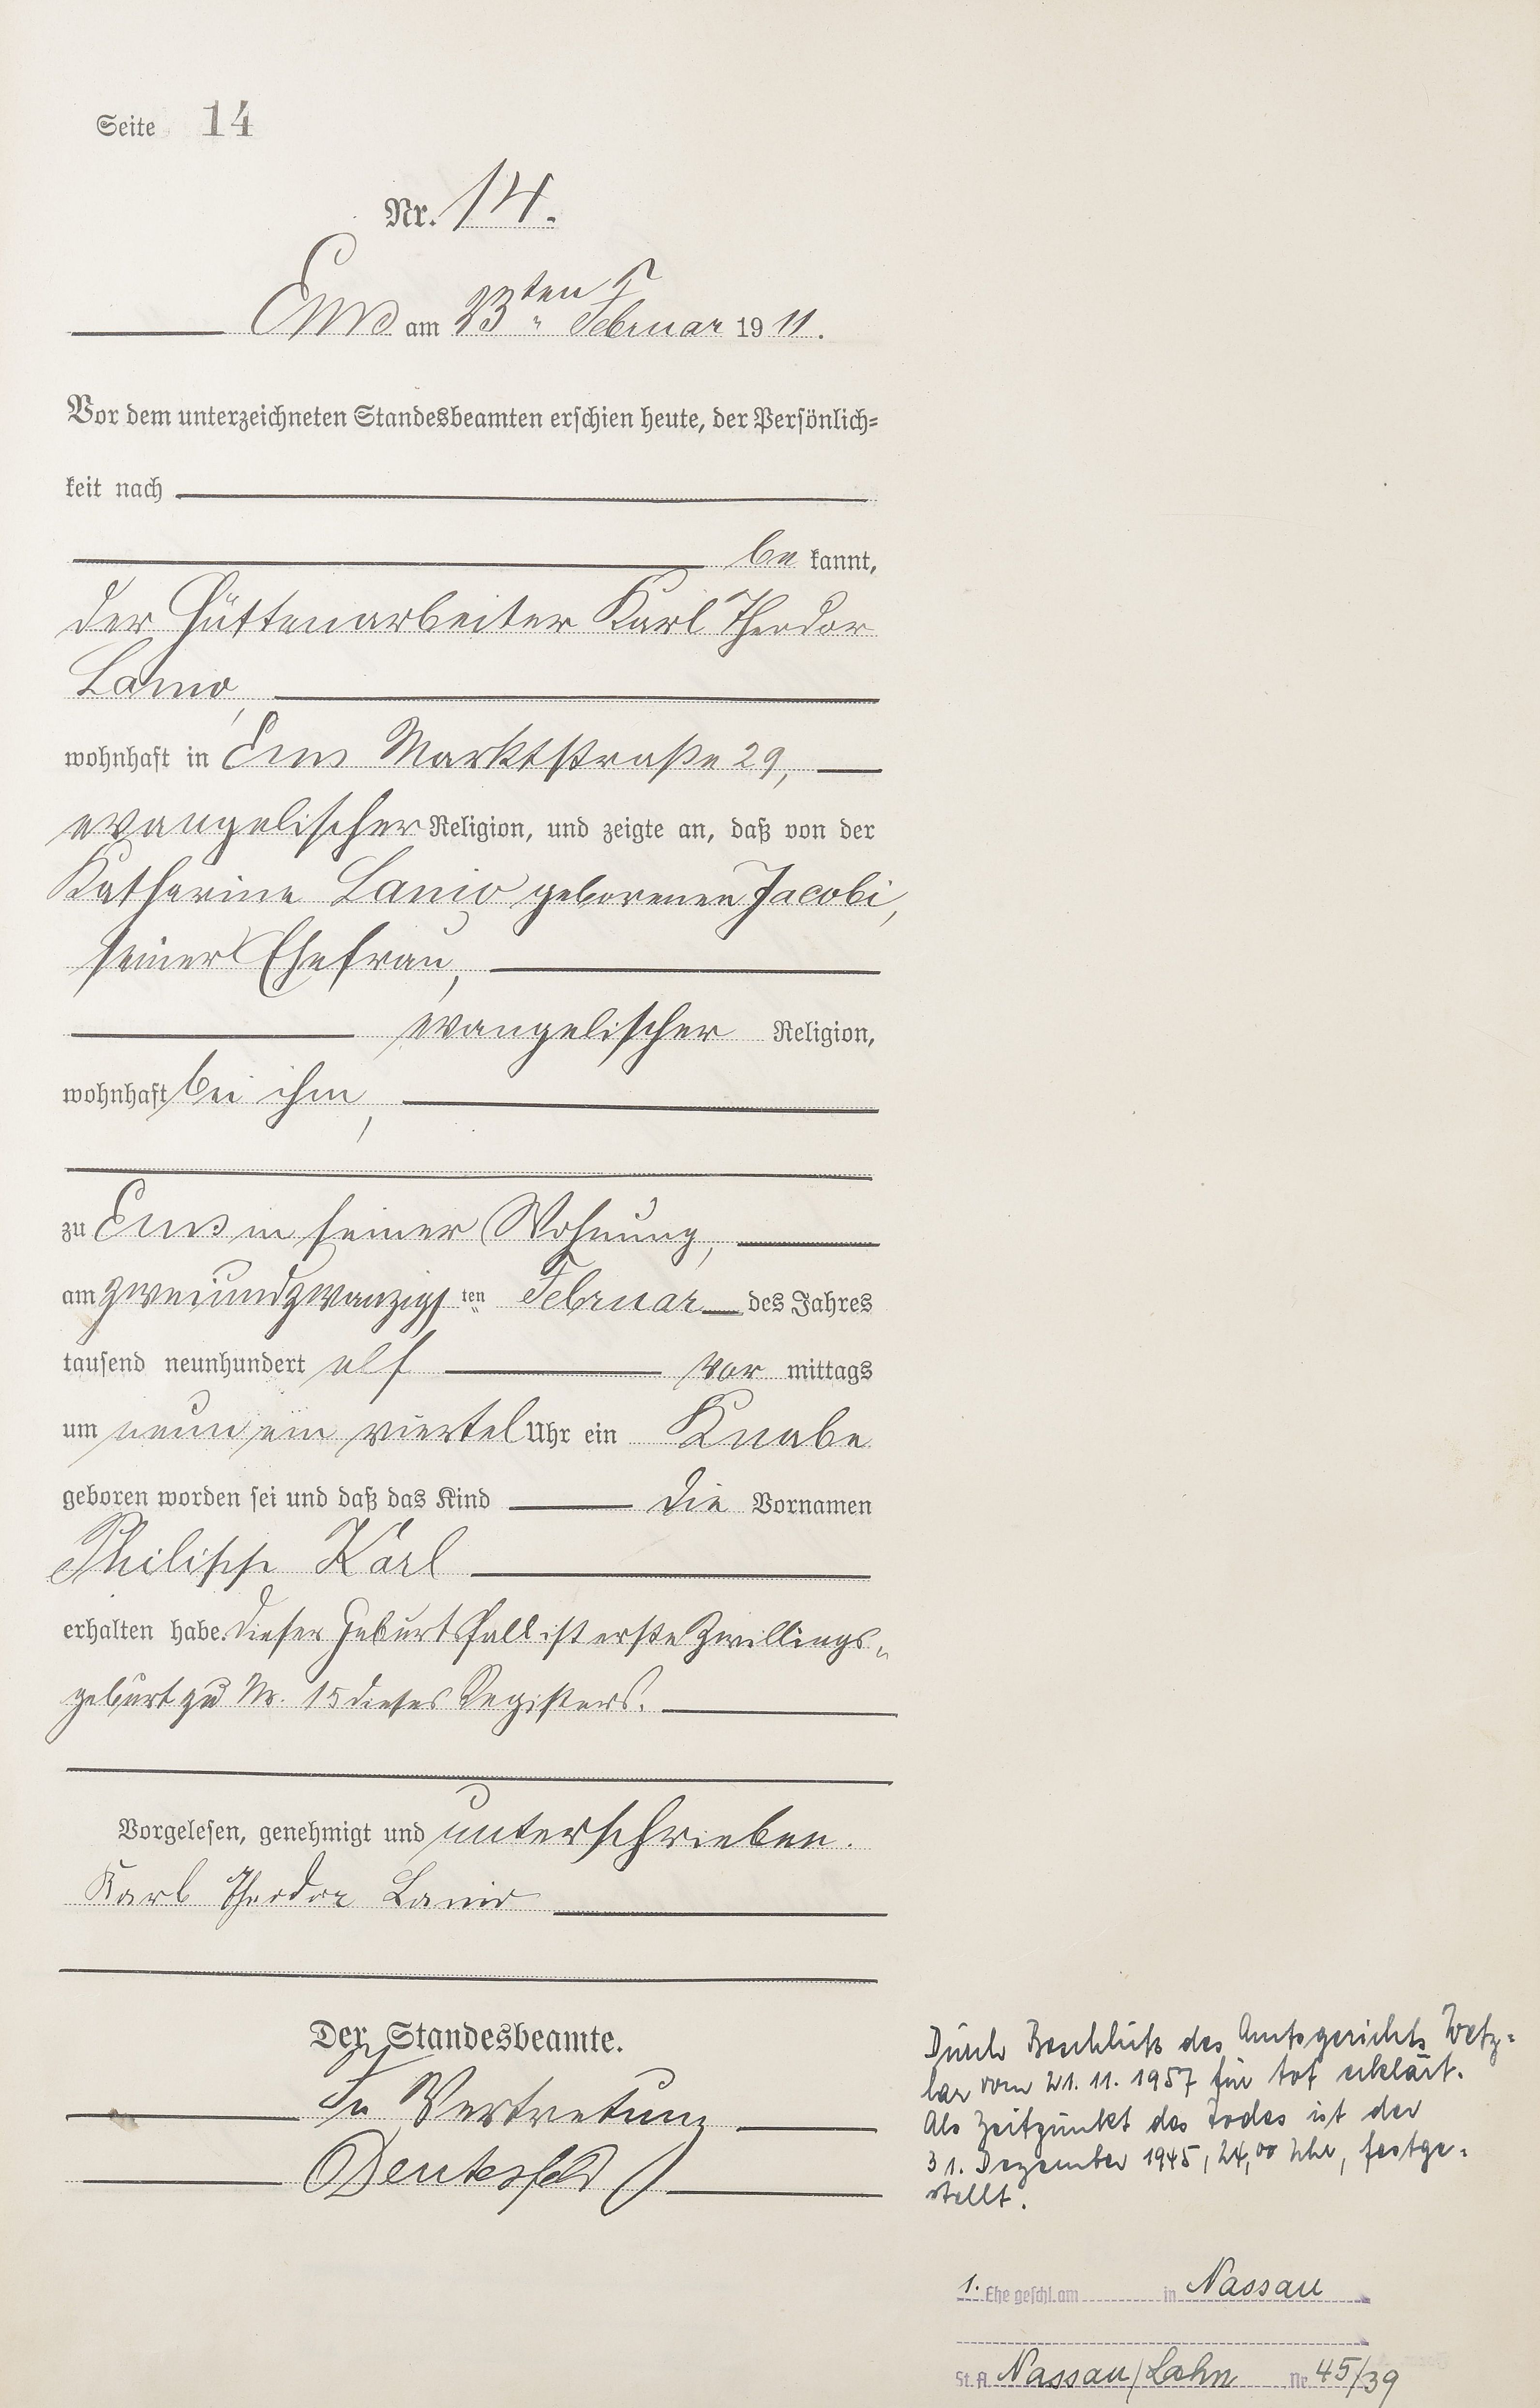 Seite 14
Nr. 14.
Ems am 23ten Februar 1911.
Vor dem unterzeichneten Standesbeamten erschien heute, der Persönlich-
keit nach
be kannt,
der Hüttenarbeiter Karl Theodor
Lanio,
wohnhaft in Ems Marktstraße 29,
evangelischer Religion, und zeigte an, daß von der
Katharina Lanio geborenen Jacobi,
seiner Ehefrau,
evangelischer Religion,
wohnhaft bei ihm,
zu Ems in seiner Wohnung,
am zweiundzwanzigsten Februar des Jahres
tausend neunhundert elf vor mittags
um neun ein viertel Uhr ein Knabe
geboren worden sei und daß das Kind die Vornamen
Philipp Karl
erhalten habe. Dieser Geburtsfall ist erste Zwillings-
geburt zu Nr. 15 dieses Registers.
Vorgelesen, genehmigt und unterschrieben.
Karl Theodor Lanio
Der Standesbeamte.
In Vertretung
Durch Beschluß des Amtsgerichts Wetz-
lar vom 21. 11. 1957 für tot erklärt.
Als Zeitpunkt des Todes ist der
31. Dezember 1945, 24,00 Uhr, festge-
stellt.
1. Ehe geschl. am in Nassau
St. A. Nassau/Lahn Nr. 45/39